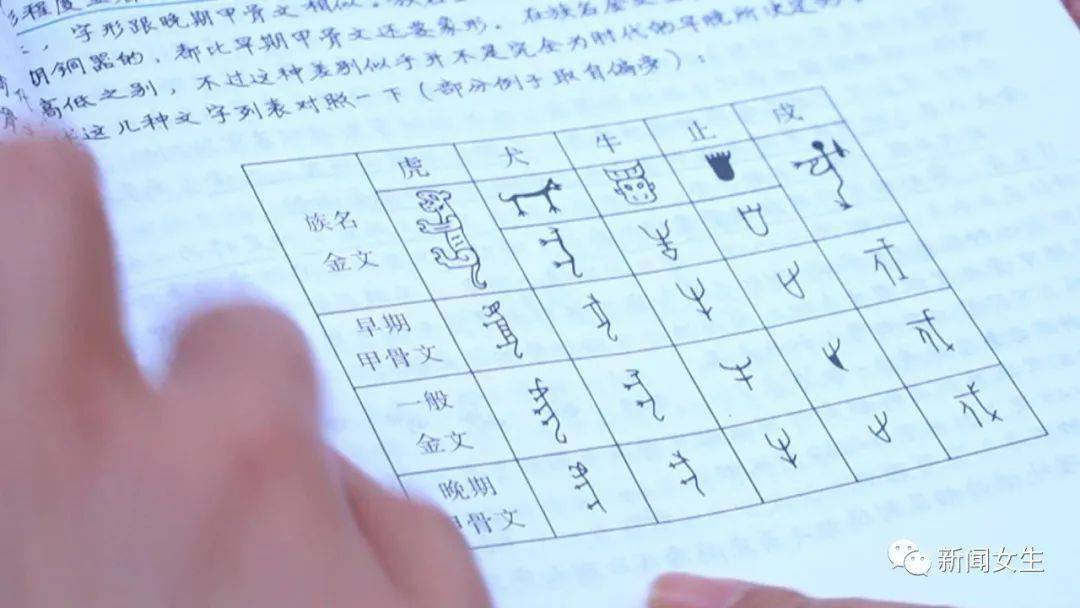 程度
字形跟晚期甲骨文相似。族名
铜器的,都比早期甲骨文还要象形。在族名金文
高低之别,不过这种差别似乎并不是完全为时代的早晚所决定的
这几种文字列表对照一下(部分例子取自偏旁):
虎 犬 牛 止 戍
族名
金文
早期
甲骨文
一般
金文
晚期
甲骨文
新闻女生